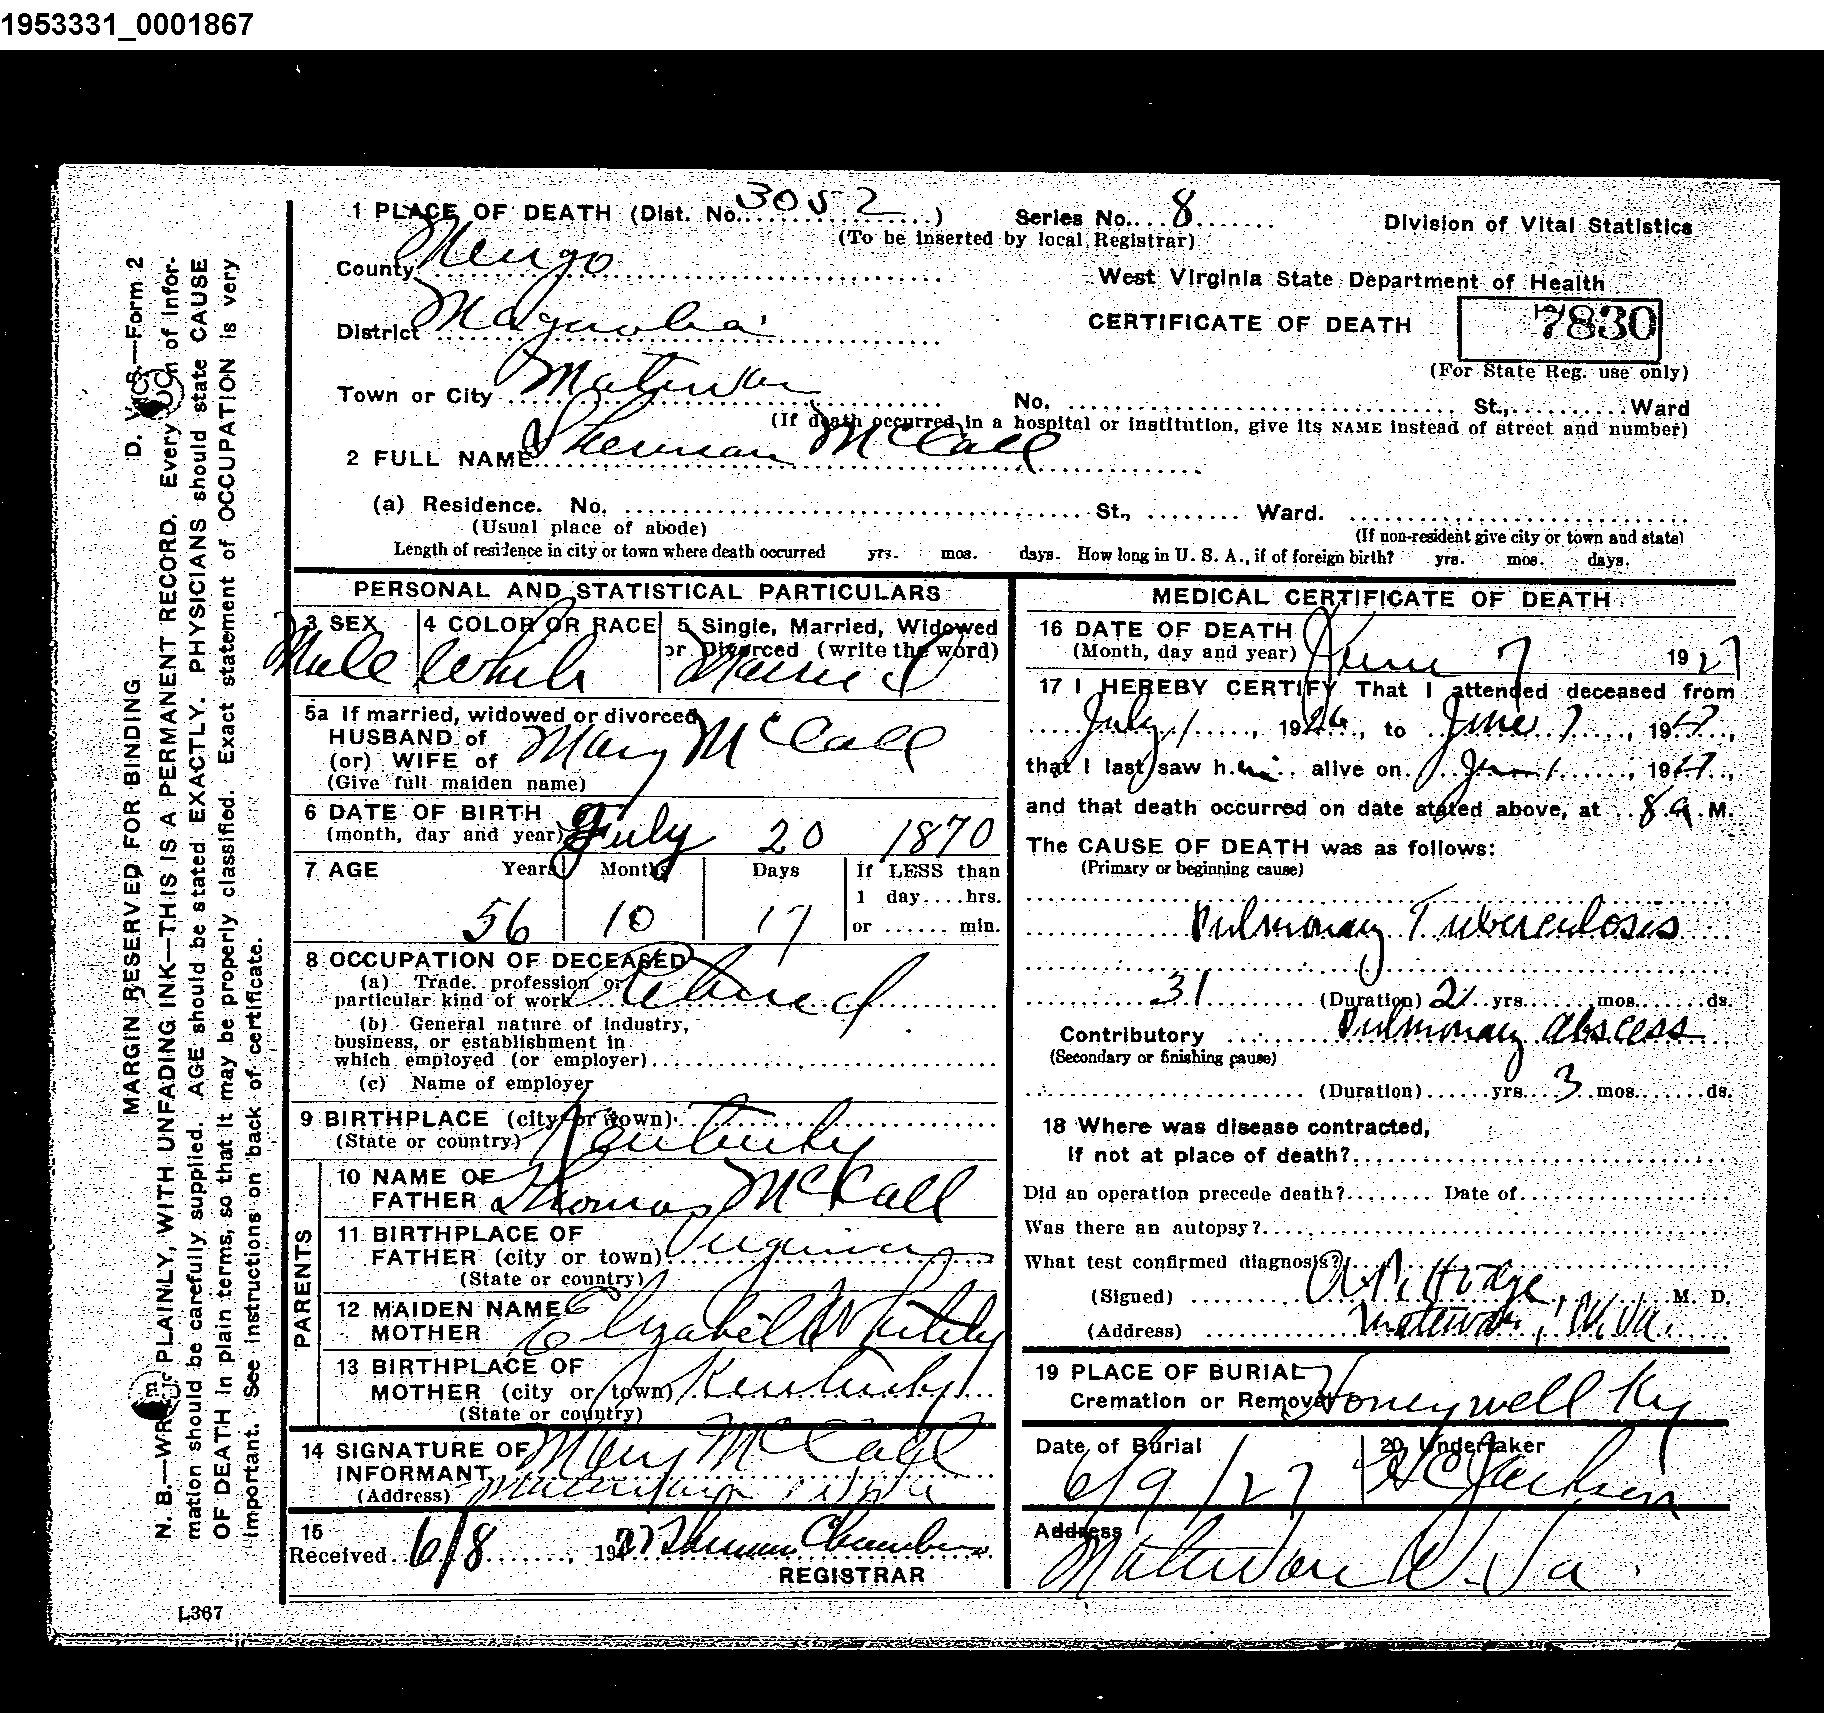 1953331_0001867
1 PLACE OF DEATH (Dist. No. 3052) Series No. 8 Division of Vital Statistics
(To be inserted by local Registrar)
County Mingo
West Virginia State Department of Health
District Magnolia
CERTIFICATE OF DEATH 7830
(For State Reg. use only)
Town or City Matewan
No. St., Ward
(If death occurred in a hospital or institution, give its NAME instead of street and number)
2 FULL NAME Sherman McCall
(a) Residence. No. St., Ward.
(Usual place of abode) (If non-resident give city or town and state)
Length of residence in city or town where death occurred yrs. mos. days. How long in U. S. A., if of foreign birth? yrs. mos. days.
PERSONAL AND STATISTICAL PARTICULARS
3 SEX 4 COLOR OR RACE 5 Single, Married, Widowed
or Divorced (write the word)
Male White Married
5a If married, widowed or divorced
HUSBAND of
(or) WIFE of Mary McCall
(Give full maiden name)
6 DATE OF BIRTH
(month, day and year) July 20 1870
7 AGE Years Months Days If LESS than
1 day....hrs.
56 10 17 or ...... min.
8 OCCUPATION OF DECEASED
(a) Trade, profession or
particular kind of work Retired
(b) General nature of industry,
business, or establishment in
which employed (or employer)
(c) Name of employer
9 BIRTHPLACE (city or town)
(State or country) Kentucky
PARENTS
10 NAME OF
FATHER Thomas McCall
11 BIRTHPLACE OF
FATHER (city or town) Virginia
(State or country)
12 MAIDEN NAME OF
MOTHER Elizabeth
13 BIRTHPLACE OF
MOTHER (city or town) Kentucky
(State or country)
14 SIGNATURE OF
INFORMANT Mary McCall
(Address) W Va
15
Received 6/8, 1927 Thurman Chambers
REGISTRAR
MEDICAL CERTIFICATE OF DEATH
16 DATE OF DEATH
(Month, day and year) June 7 1927
17 I HEREBY CERTIFY That I attended deceased from
July 1, 1926, to June 7, 1927,
that I last saw him alive on June 1, 1927,
and that death occurred on date stated above, at 8 a M.
The CAUSE OF DEATH was as follows:
(Primary or beginning cause)
Pulmonary Tuberculosis
31 (Duration) 2 yrs. mos. ds.
Contributory Pulmonary abscess
(Secondary or finishing cause)
(Duration) yrs. 3 mos. ds.
18 Where was disease contracted,
if not at place of death?
Did an operation precede death? Date of
Was there an autopsy?
What test confirmed diagnosis?
(Signed) Hodge, M. D.
(Address) Matewan, W. Va.
19 PLACE OF BURIAL
Cremation or Removal Honeywell Ky
Date of Burial 20 Undertaker
6/9/27 H C Jackson
Address
Matewan W. Va.
D. V. S.—Form 2
MARGIN RESERVED FOR BINDING
N. B.—WRITE PLAINLY, WITH UNFADING INK—THIS IS A PERMANENT RECORD. Every item of infor-
mation should be carefully supplied. AGE should be stated EXACTLY. PHYSICIANS should state CAUSE
OF DEATH in plain terms, so that it may be properly classified. Exact statement of OCCUPATION is very
important. See instructions on back of certificate.
L367